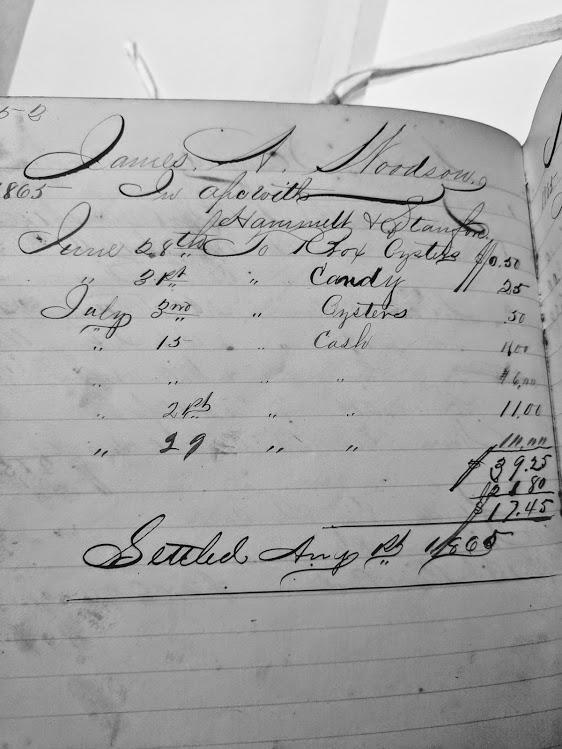 James. A. Woodson.
1865 In a/c with
Hammett & Stanfer
June 28th To 1 Box Oysters $0.50
" 31st " Candy 25
July 3rd " Oysters .50
" 15 " Cash 11.00
" " " "
" 21st " " 11.00
" 29 " "
$39.25
21 80
$17.45
Settled Aug 1st 1865